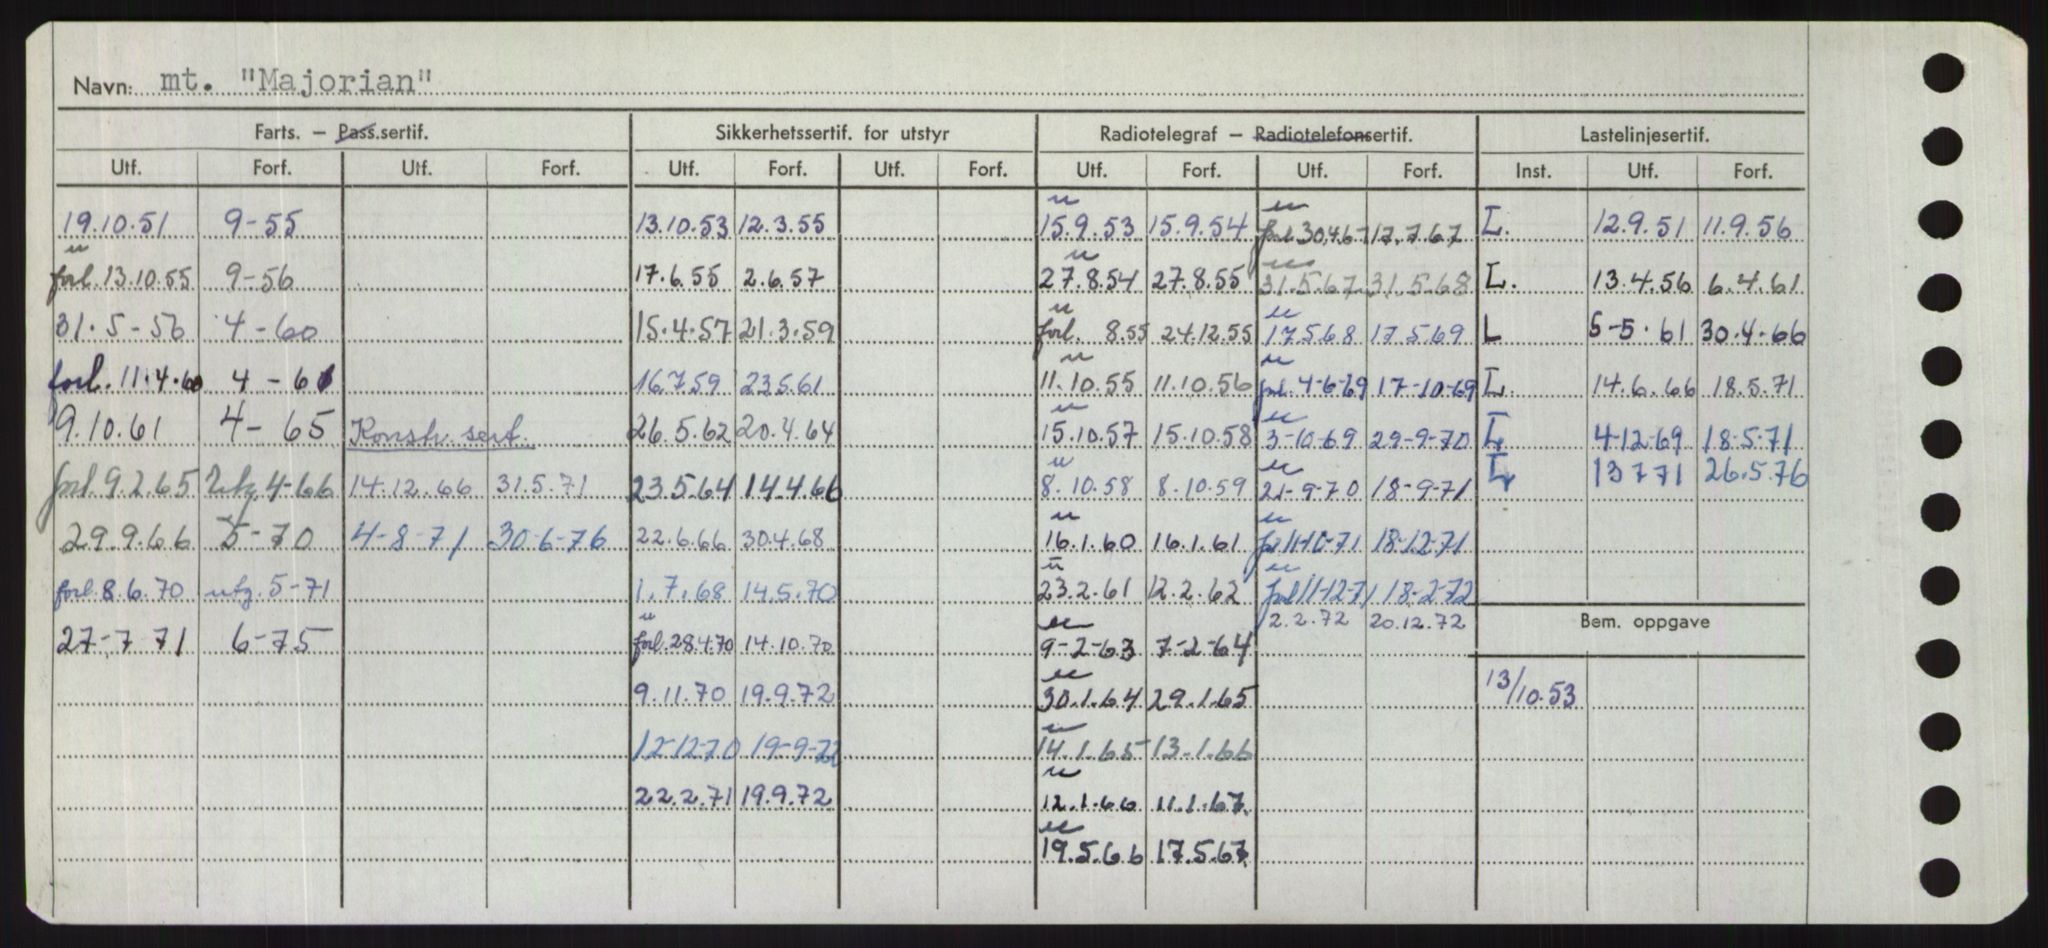 Navn: mt. "Majorian"
Farts. – Pass.sertif. Sikkerhetssertif. for utstyr Radiotelegraf – Radiotelefonsertif. Lastelinjesertif.
Utf. Forf. Utf. Forf. Utf. Forf. Utf. Forf. Utf. Forf. Utf. Forf. Inst. Utf. Forf.
u u
19.10.51 9-55 13.10.53 12.3.55 15.9.53 15.9.54 forl. 30.4.67 17.7.67 L. 12.9.51 11.9.56
u u u
forl. 13.10.55 9-56 17.6.55 2.6.57 27.8.54 27.8.55 31.5.67 31.5.68 L. 13.4.56 6.4.61
u u
31.5-56 4-60 15.4.57 21.3.59 forl. 8.55 24.12.55 17.5.68 17.5.69 L 5-5.61 30.4.66
u u
forl. 11.4.60 4-61 16.7.59 23.5.61 11.10.55 11.10.56 forl. 4-6-69 17-10-69 L. 14.6.66 18.5.71
u u
9.10.61 4-65 Konstr. sert. 26.5.62 20.4.64 15.10.57 15.10.58 3-10-69 29-9-70 L 4-12-69 18-5-71
u u
forl. 9.2.65 utg. 4-66 14.12.66 31.5.71 23.5.64 14.4.66 8.10.58 8.10.59 21-9-70 18-9-71 L 13771 26.5.76
u u
29.9.66 5-70 4-8-71 30-6-76 22.6.66 30.4.68 16.1.60 16.1.61 18-12-71
u u
forl. 8.6.70 utg. 5-71 1.7.68 14.5.70 23.2.61 12.2.62 forl 11-12-71 18-2-72
2.2.72 20.12.72 Bem. oppgave
u u
27-7 71 6-75 forl. 28.4.70 14.10.70 9-2-63 7-2-64
u
9.11.70 19.9.72 30.1.64 29.1.65 13/10.53
u
12-12-70 19-9-72 14.1.65 13-1.66
u
22.2.71 19.9.72 12.1.66 11.1.67
u
19.5.66 17.5.67